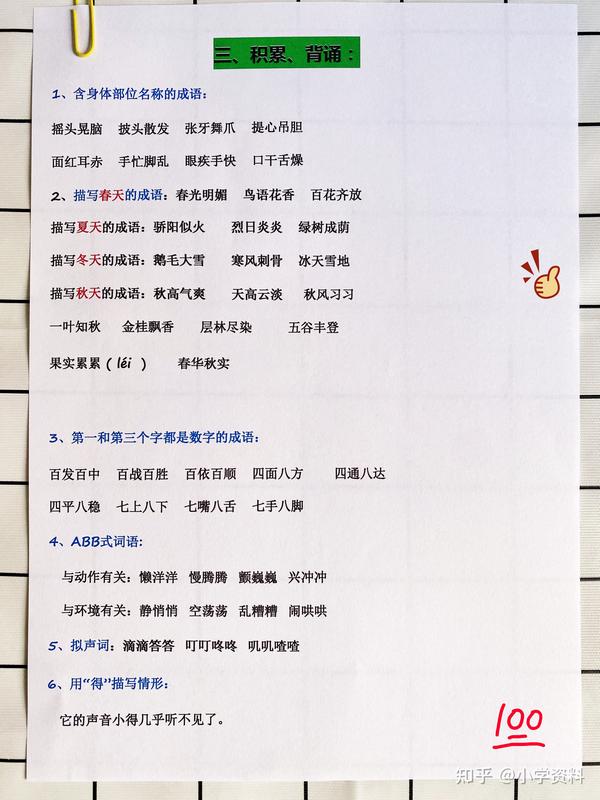 三、积累、背诵：
1、含身体部位名称的成语：
摇头晃脑 披头散发 张牙舞爪 提心吊胆
面红耳赤 手忙脚乱 眼疾手快 口干舌燥
2、描写春天的成语：春光明媚 鸟语花香 百花齐放
描写夏天的成语：骄阳似火 烈日炎炎 绿树成荫
描写冬天的成语：鹅毛大雪 寒风刺骨 冰天雪地
描写秋天的成语：秋高气爽 天高云淡 秋风习习
一叶知秋 金桂飘香 层林尽染 五谷丰登
果实累累（léi ） 春华秋实
3、第一和第三个字都是数字的成语：
百发百中 百战百胜 百依百顺 四面八方 四通八达
四平八稳 七上八下 七嘴八舌 七手八脚
4、ABB式词语：
与动作有关：懒洋洋 慢腾腾 颤巍巍 兴冲冲
与环境有关：静悄悄 空荡荡 乱糟糟 闹哄哄
5、拟声词：滴滴答答 叮叮咚咚 叽叽喳喳
6、用“得”描写情形：
它的声音小得几乎听不见了。
100
知乎 @小学资料